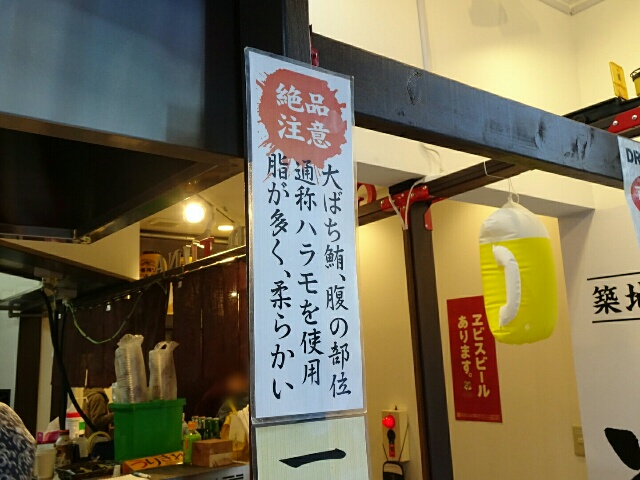 絶品
注意
大ばち鮪、腹の部位
通称ハラモを使用
脂が多く、柔らかい
一
ヱビスビール
あります。
築地
DR